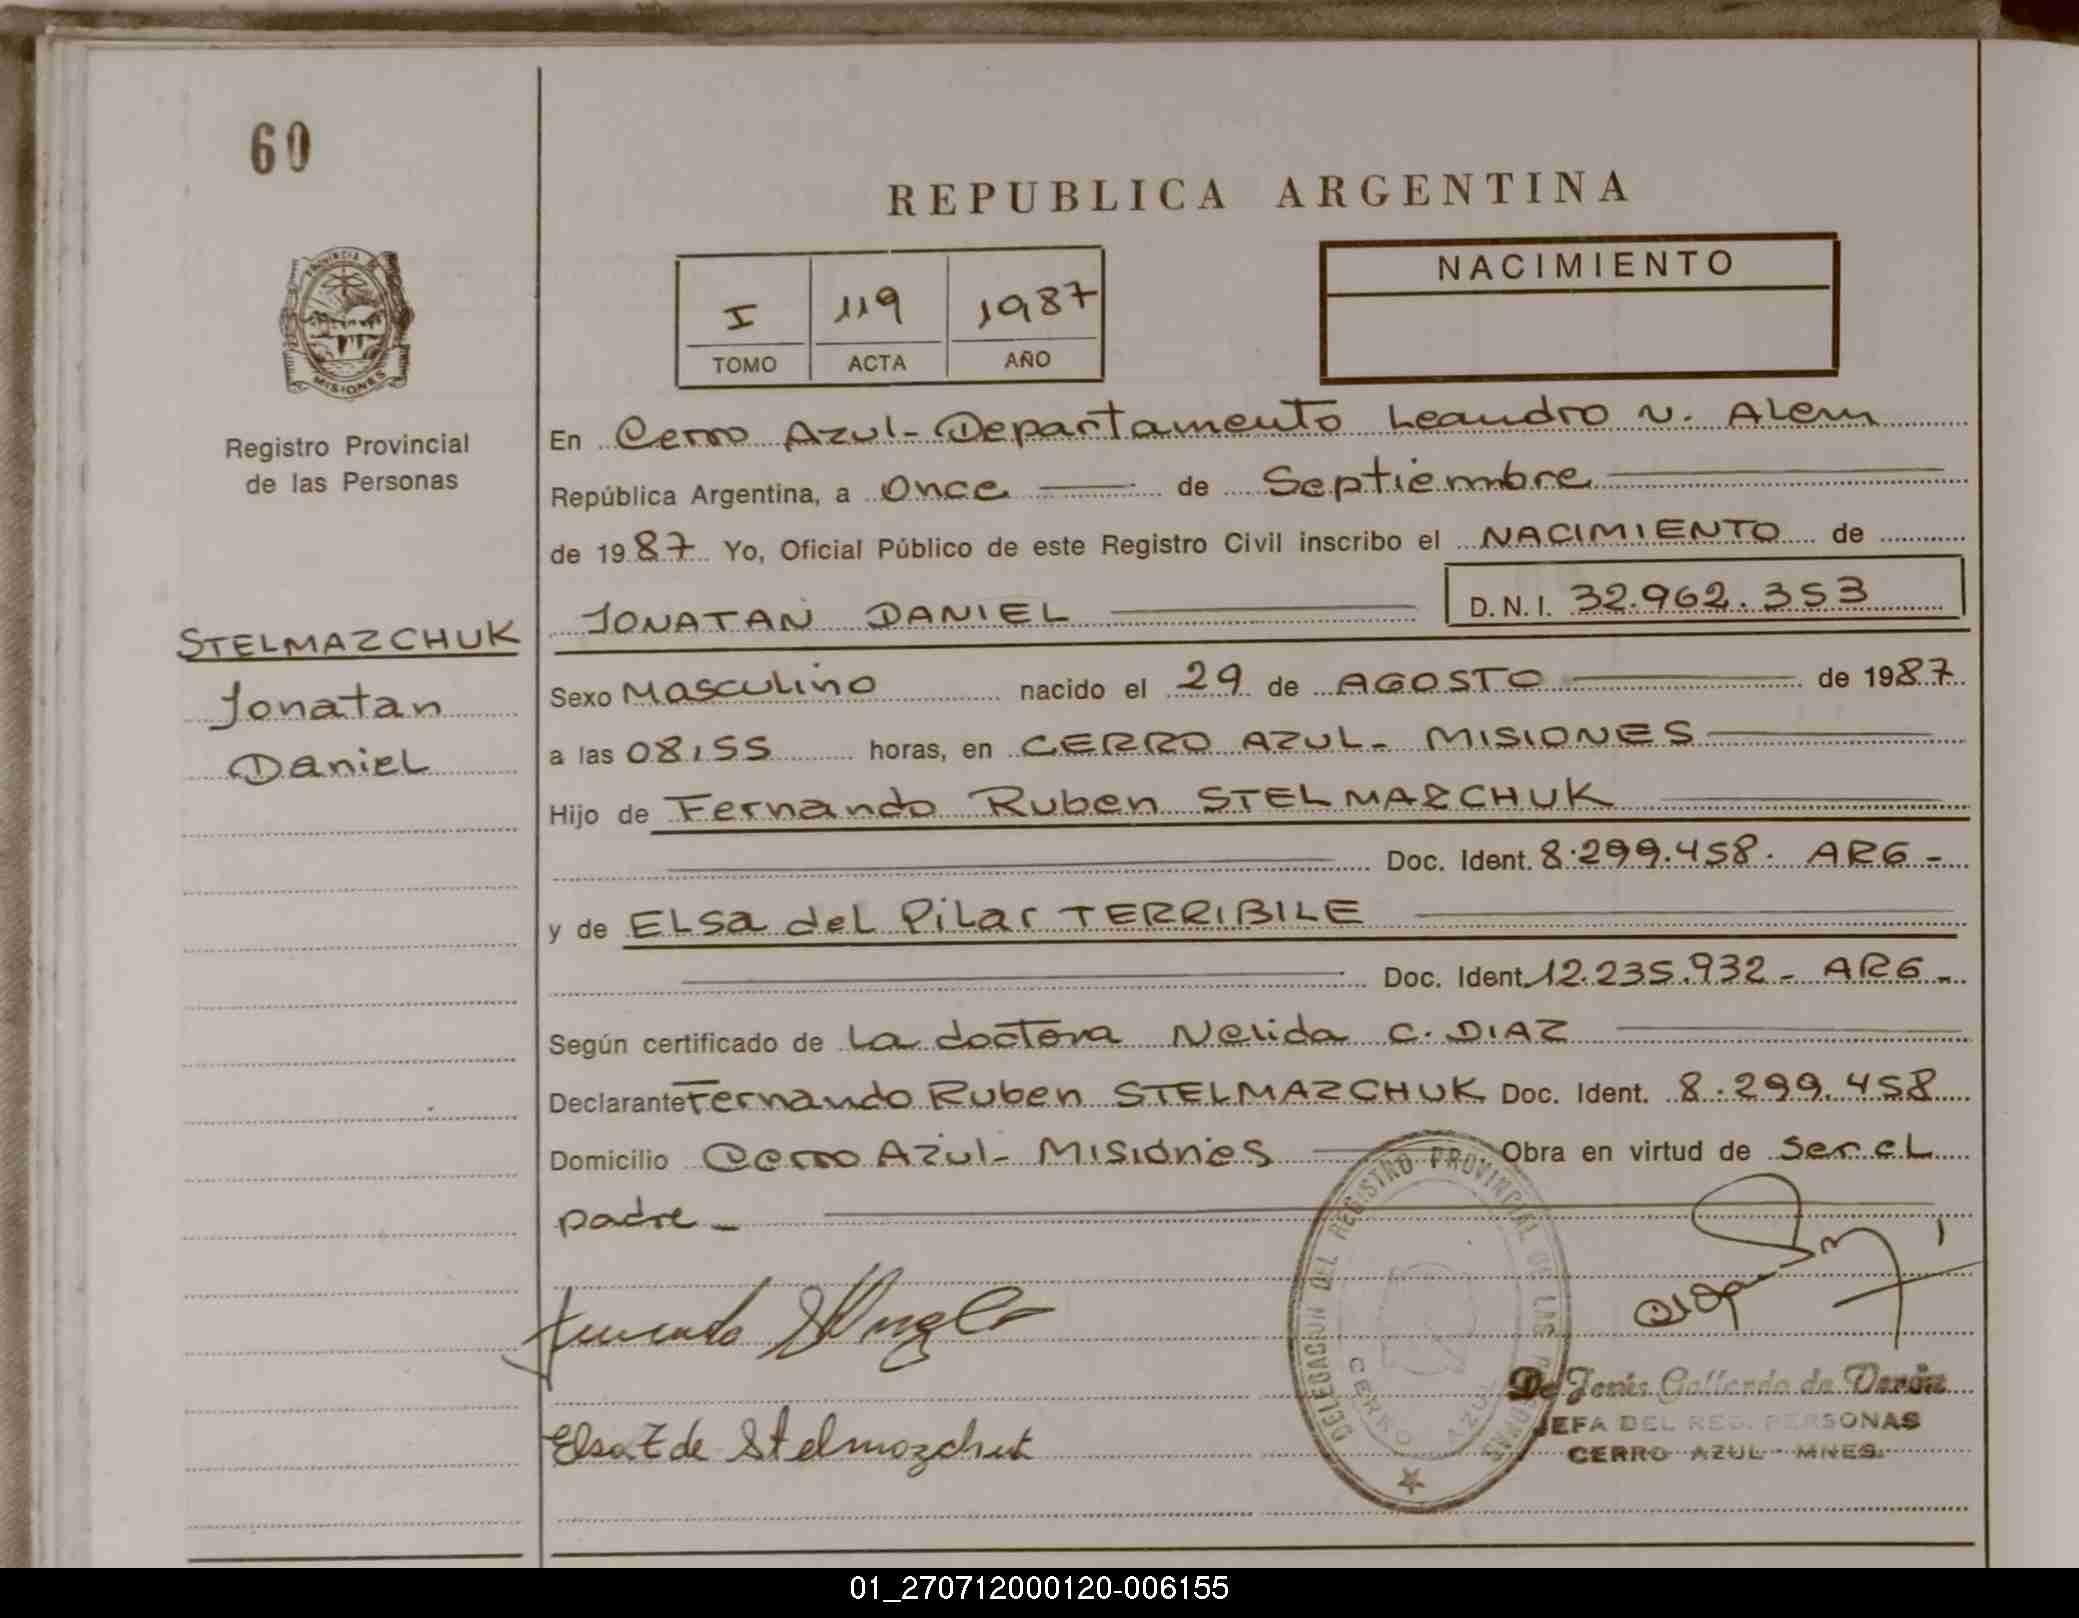 60
REPUBLICA ARGENTINA
PROVINCIA DE
MISIONES
Registro Provincial
de las Personas
I 119 1987
TOMO ACTA AÑO
NACIMIENTO
En Cerro Azul - Departamento Leandro N. Alem
República Argentina, a once de Septiembre
de 1987 Yo, Oficial Público de este Registro Civil inscribo el NACIMIENTO de
JONATAN DANIEL D.N.I. 32.962.353
STELMAZCHUK
Jonatan
Daniel
Sexo Masculino nacido el 29 de AGOSTO de 1987
a las 08,55 horas, en CERRO AZUL - MISIONES
Hijo de Fernando Ruben STELMAZCHUK
Doc. Ident. 8.299.458. ARG -
y de ELSa del Pilar TERRIBILE
Doc. Ident. 12.235.932 - ARG -
Según certificado de la doctora Nelida C. DIAZ
Declarante Fernando Ruben STELMAZCHUK Doc. Ident. 8.299.458
Domicilio Cerro Azul - Misiones Obra en virtud de ser el
padre -
Elsa T de Stelmozchuk
DELEGACION DEL REGISTRO PROVINCIAL DE LAS PERSONAS
CERRO AZUL
De Jesús Gallardo de Verón
JEFA DEL REG. PERSONAS
CERRO AZUL - MNES.
01_270712000120-006155